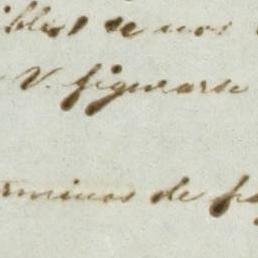 ibles se nos
V. figurarse
rminos de